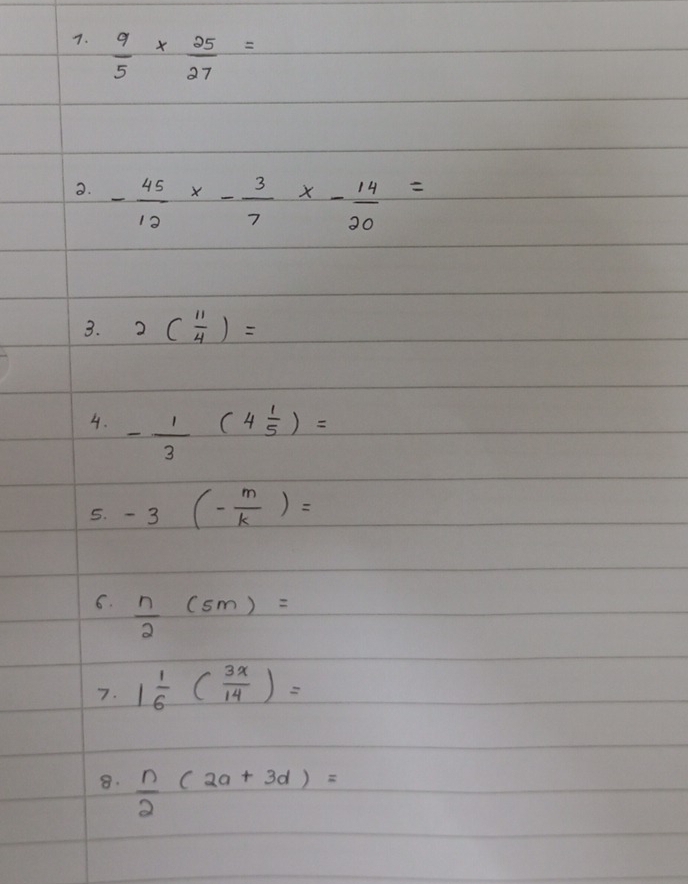 1. 9/5 × 25/27 =
2. - 45/12 × - 3/7 × - 14/20 =
3. 2 ( 11/4 ) =
4. - 1/3 ( 4 1/5 ) =
5. - 3 ( - m/k ) =
6. n/2 (5m) =
7. 1 1/6 ( 3x/14 ) =
8. n/2 ( 2a + 3d ) =